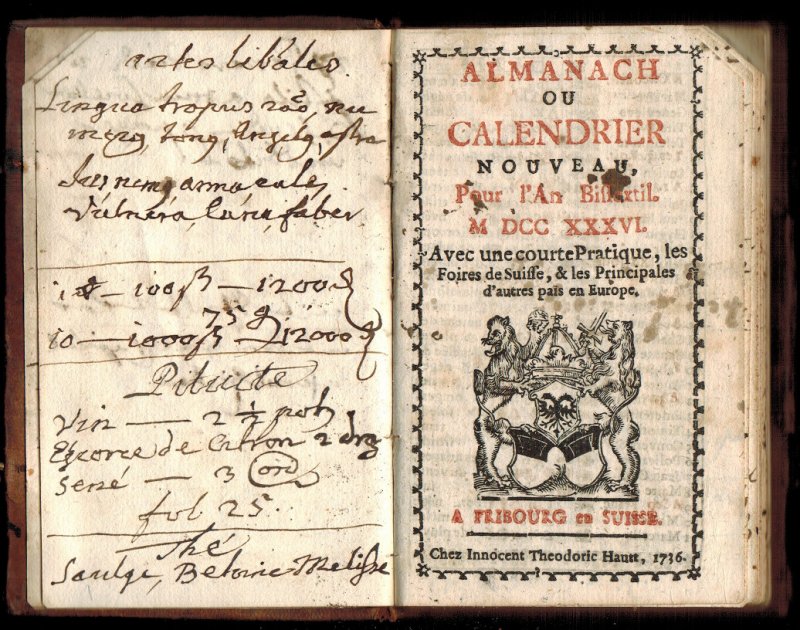 artes lib̃ales.
Lingua tropus rão, nu
merg tong, Angelg, astra
Ius nemg arma
Vulnera, Luna, faber
100 ß — 1200 ₰
75 ₰
10 — 1000 ß — 12000 ₰
Pituite
Vin — 2 ½
Écorce de Citron 2
Sené — 3
fol 25.
Thé
Saulge, Betoine Melisse
ALMANACH
OU
CALENDRIER
NOUVEAU,
Pour l'An Bissextil.
M DCC XXXVI.
Avec une courte Pratique, les
Foires de Suisse, & les Principales
d'autres païs en Europe.
A FRIBOURG en SUISSE.
Chez Innocent Theodoric Hautt, 1736.